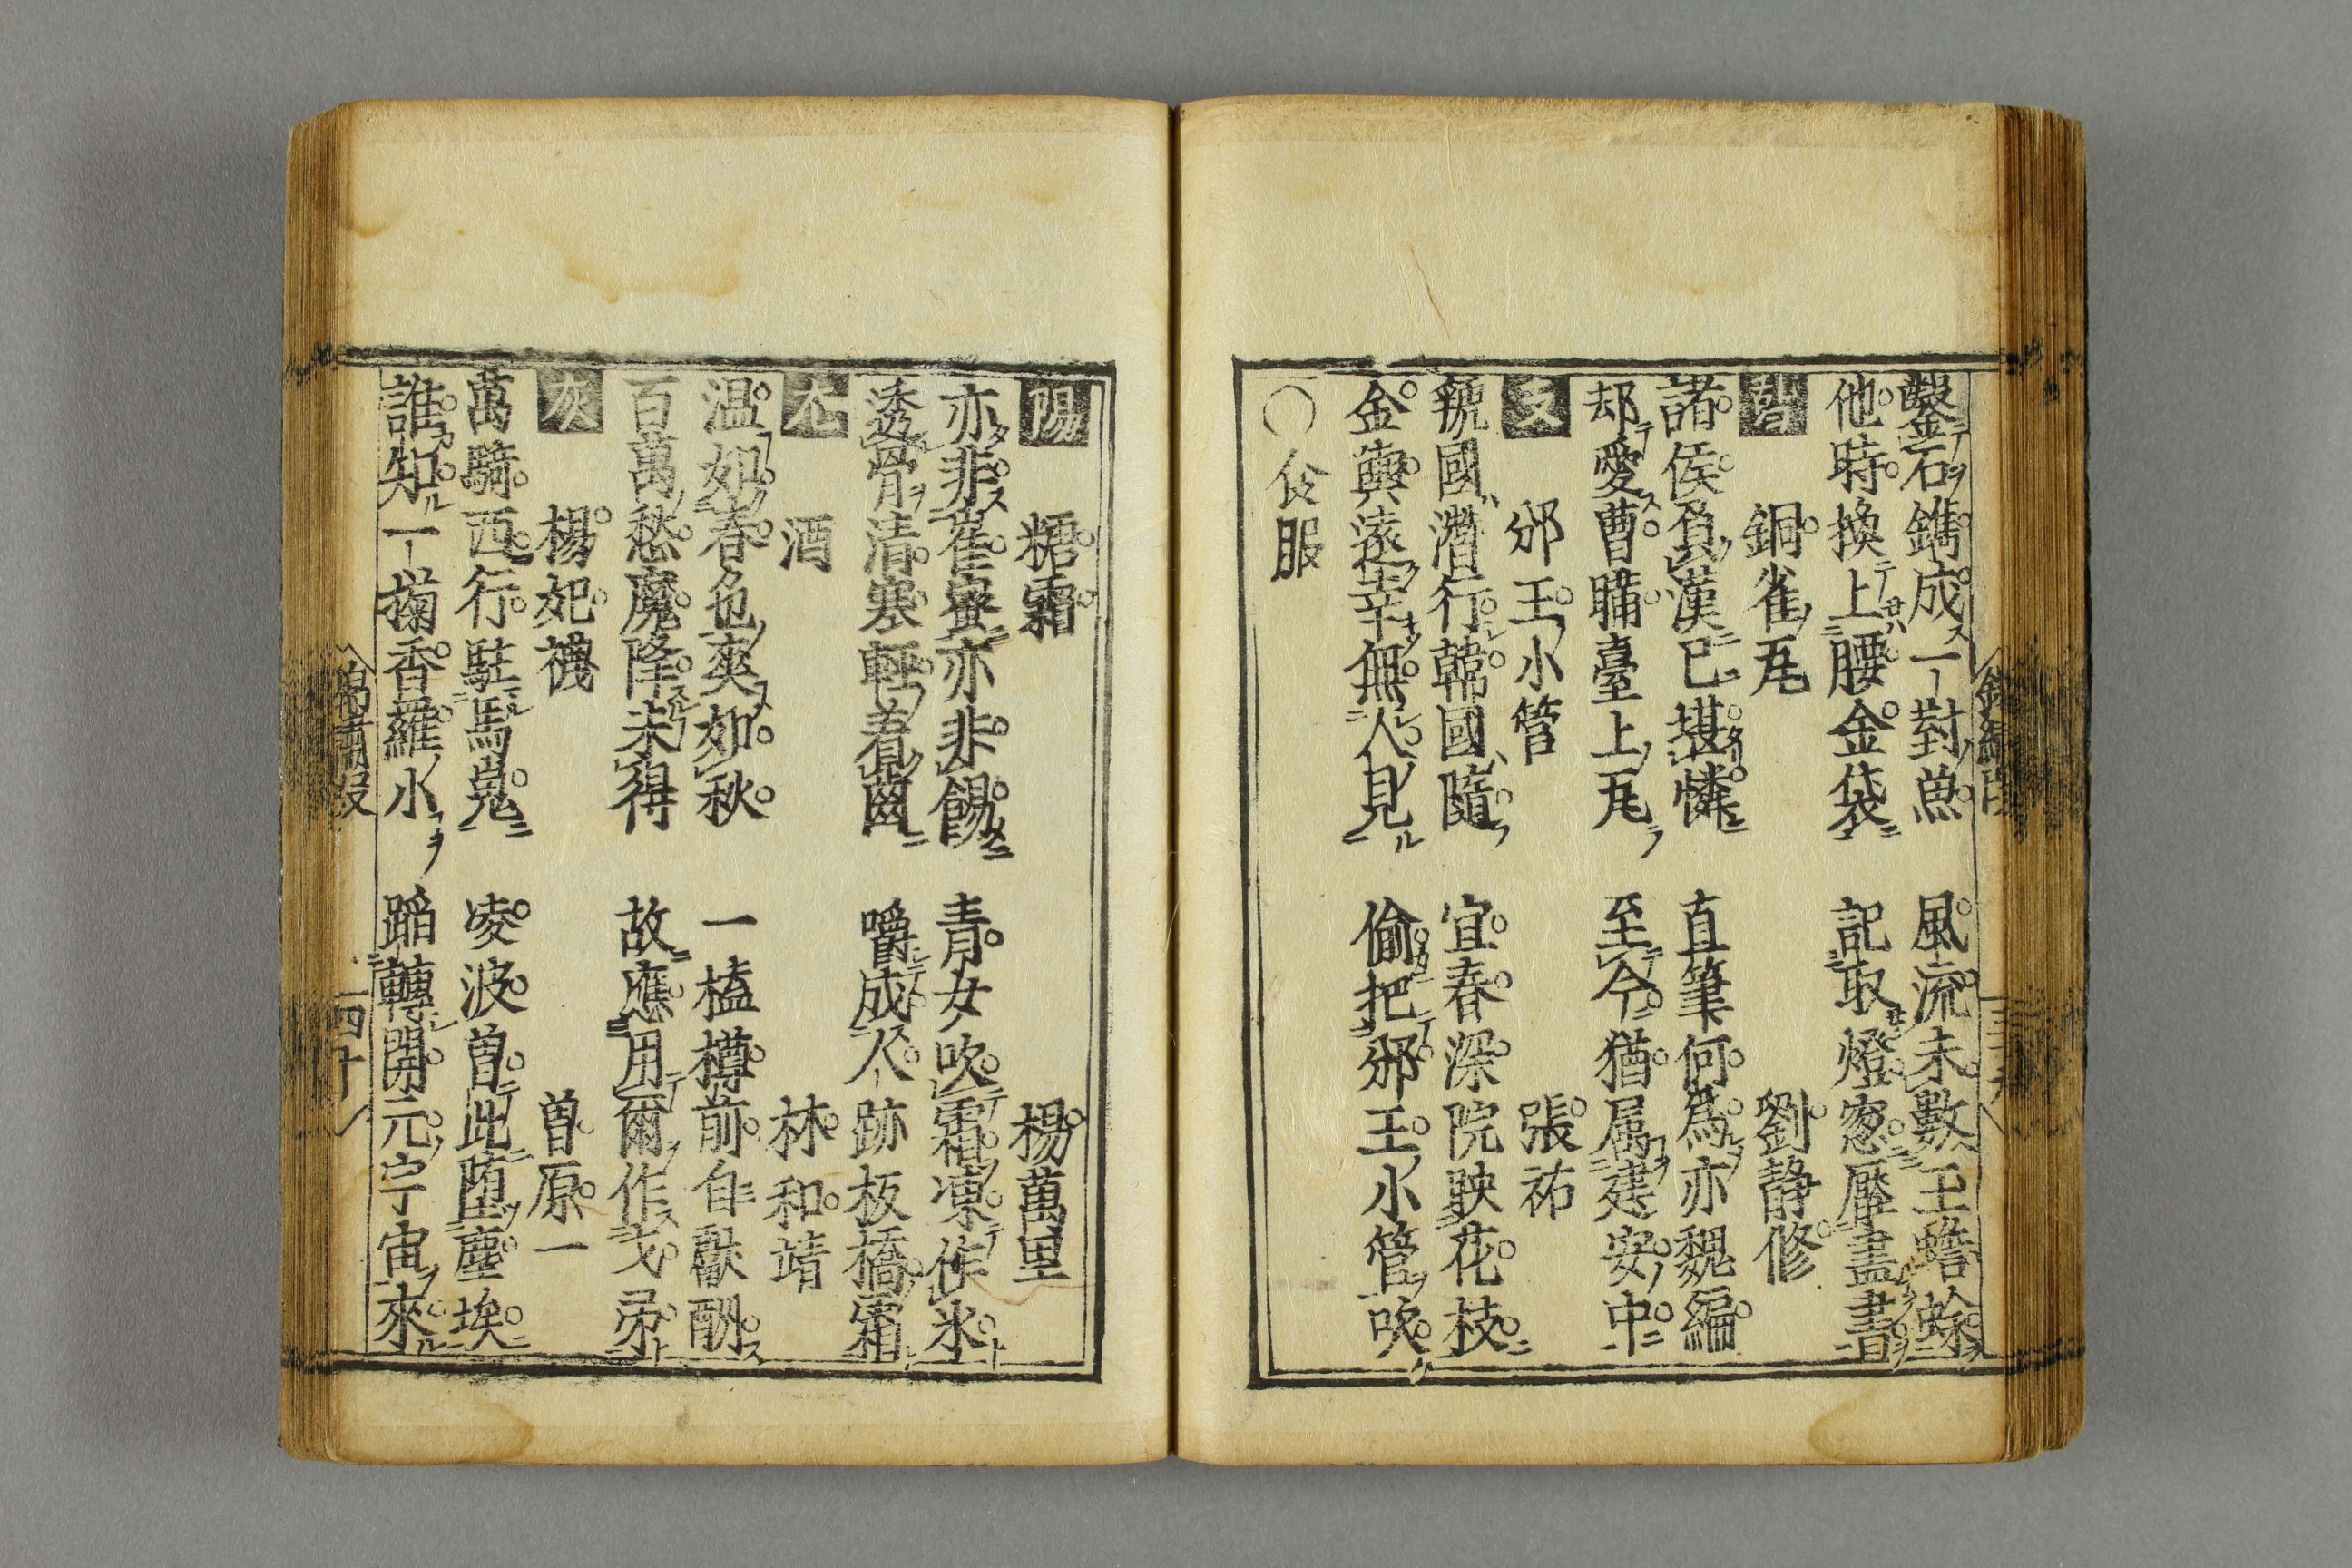 鑿石鐫成一對魚 風流未數玉蟾蜍
他時換上腰金袋 記取燈窓壓盡書
銅雀瓦 劉静修
諸侯負漢已堪憐 直筆何爲亦魏編
却愛曹瞞臺上瓦 至今猶属建安中
又 邠王小管 張祐
虢國潛行韓國隨 宜春深院映花枝
金輿遠幸無人見 偷把邠王小管吹
〇食服
陽 糖霜 楊萬里
亦非崔蜜亦非餳 青女吹霜凍作氷
透骨清寒軽着齒 嚼成人跡板橋霜
尤 酒 林和靖
温如春色爽如秋 一榼樽前自獻酬
百萬愁魔降未得 故應用爾作戈矛
灰 楊妃襪 曽原一
萬騎西行駐馬嵬 凌波曽此堕塵埃
誰知一掬香羅小 蹈轉開元宇宙來
四十